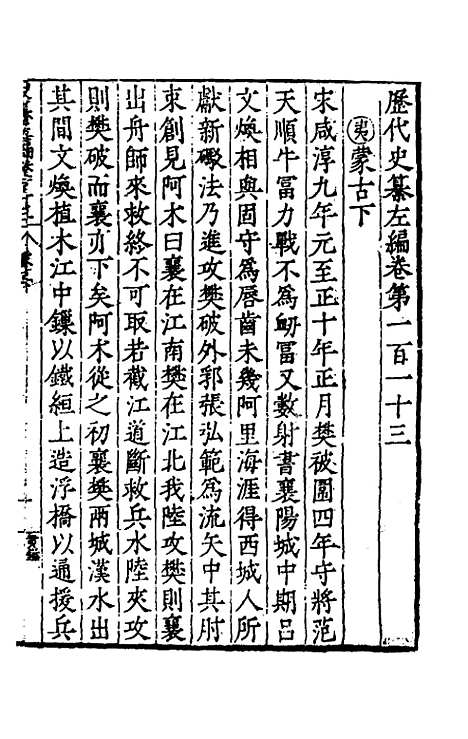 歷代史纂左編卷第一百一十三
夷蒙古下
宋咸淳九年元至正十年正月樊被圍四年守將范
天順牛冨力戰不爲衂冨又數射書襄陽城中期吕
文煥相與固守爲唇齒未幾阿里海涯得西城人所
獻新礮法乃進攻樊破外郭張弘範爲流矢中其肘
束創見阿术曰襄在江南樊在江北我陸攻樊則襄
出舟師來救終不可取若截江道斷救兵水陸夾攻
則樊破而襄亦下矣阿术從之初襄樊兩城漢水出
其間文煥植木江中鏁以鐵絙上造浮橋以通援兵